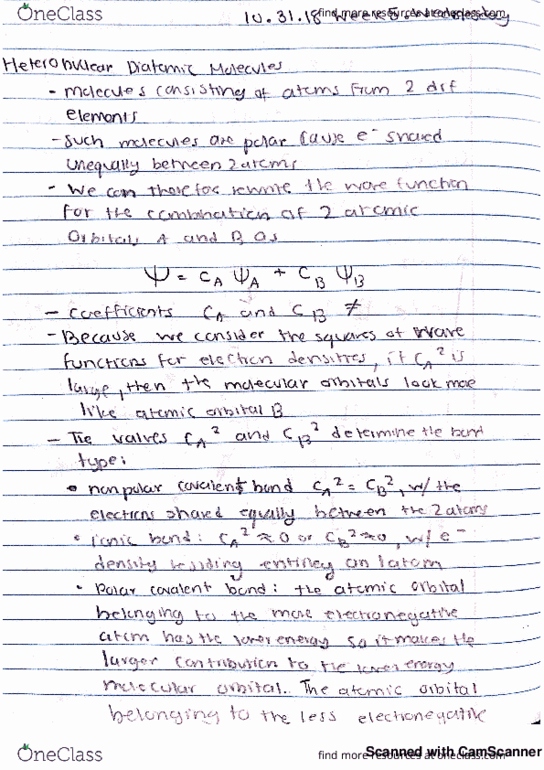 OneClass
10.31.18 find more resources at oneclass.com
Heteronuclear Diatomic Molecules
- molecules consisting of atoms from 2 dif
elements
- Such molecules are polar cause e⁻ shared
unequally between 2 atoms
- We can therefore rewrite the wave function
for the combination of 2 atomic
orbitals A and B as
Ψ = C_A Ψ_A + C_B Ψ_B
- coefficients C_A and C_B ≠
- Because we consider the squares of wave
functions for electron densities, if C_A² is
large, then the molecular orbitals look more
like atomic orbital B
- The values C_A² and C_B² determine the bond
type:
• nonpolar covalent bond C_A² = C_B², w/ the
electrons shared equally between the 2 atoms
• Ionic bond: C_A² ≈ 0 or C_B² ≈ 0, w/ e⁻
density residing entirely on 1 atom
• Polar covalent bond: the atomic orbital
belonging to the more electronegative
atom has the lower energy so it makes the
larger contribution to the lower energy
molecular orbital. The atomic orbital
belonging to the less electronegative
OneClass
find more resources at oneclass.com
Scanned with CamScanner